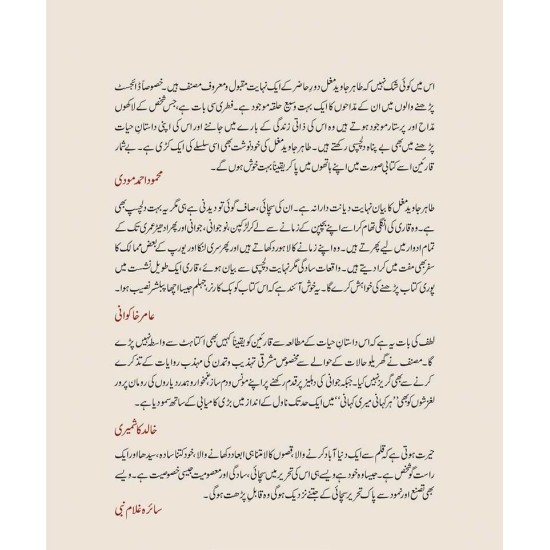 اس میں کوئی شک نہیں کہ طاہر جاوید مغل دورِ حاضر کے ایک نہایت مقبول و معروف مصنف ہیں۔ خصوصاً ڈائجسٹ
پڑھنے والوں میں ان کے مداحوں کا ایک بہت وسیع حلقہ موجود ہے۔ فطری سی بات ہے، جس شخص کے لاکھوں
مداح اور پرستار موجود ہوتے ہیں وہ اس کی ذاتی زندگی کے بارے میں جاننے اور اس کی اپنی داستانِ حیات
پڑھنے میں بھی بے پناہ دلچسپی رکھتے ہیں۔ طاہر جاوید مغل کی خودنوشت بھی اسی سلسلے کی ایک کڑی ہے۔ بے شمار
قارئین اسے کتابی صورت میں اپنے ہاتھوں میں پا کر یقیناً بہت خوش ہوں گے۔
محمود احمد مودی
طاہر جاوید مغل کا بیان نہایت دیانت دارانہ ہے۔ ان کی سچائی، صاف گوئی تو دیدنی ہے ہی مگر یہ بہت دلچسپ بھی
ہے۔ وہ قاری کی انگلی تھام کر اسے اپنے بچپن کے زمانے سے لے کر لڑکپن، نوجوانی، جوانی اور پھر ادھیڑ عمری تک کے
تمام ادوار میں لیے پھرتے ہیں۔ وہ اپنے زمانے کا لاہور دکھاتے ہیں اور پھر سری لنکا اور یورپ کے بعض ممالک کا
سفر بھی مفت میں کرا دیتے ہیں۔ واقعات سادگی مگر نہایت دلچسپی سے بیان ہوئے، قاری ایک طویل نشست میں
پوری کتاب پڑھنے کی خواہش کرے گا۔ یہ خوش آئند ہے کہ اس کتاب کو بک کارنر جہلم جیسا اچھا پبلشر نصیب ہوا۔
عامر خاکوانی
لطف کی بات یہ ہے کہ اس داستانِ حیات کے مطالعہ سے قارئین کو یقیناً کہیں بھی اکتاہٹ سے واسطہ نہیں پڑے
گا۔ مصنف نے گھریلو حالات کے حوالے سے مخصوص مشرقی تہذیب و تمدن کی مہذب روایات کے تذکرے
کرنے سے بھی گریز نہیں کیا۔ جبکہ جوانی کی دہلیز پر قدم رکھنے پر اپنے مونس و دم ساز، غمخوار و ہمدرد یاروں کی رومان پرور
لغزشوں کو بھی ’’ہر کہانی میری کہانی‘‘ میں ایک حد تک ناول کے انداز میں بڑی کامیابی کے ساتھ سمو دیا ہے۔
خالد کاشمیری
حیرت ہوتی ہے کہ قلم سے ایک دنیا آباد کرنے والا، قصوں کا لامتناہی ابعاد دکھانے والا، خود کتنا سادہ، سیدھا اور ایک
راست گو شخص ہے۔ جیسا وہ خود ہے ویسے ہی اس کی تحریر میں سچائی، سادگی اور معصومیت جیسی خصوصیت ہے۔ ویسے
بھی تصنع اور نمود سے پاک تحریر سچائی کے جتنے نزدیک ہو گی وہ قابلِ پڑھت ہو گی۔
سائرہ غلام نبی